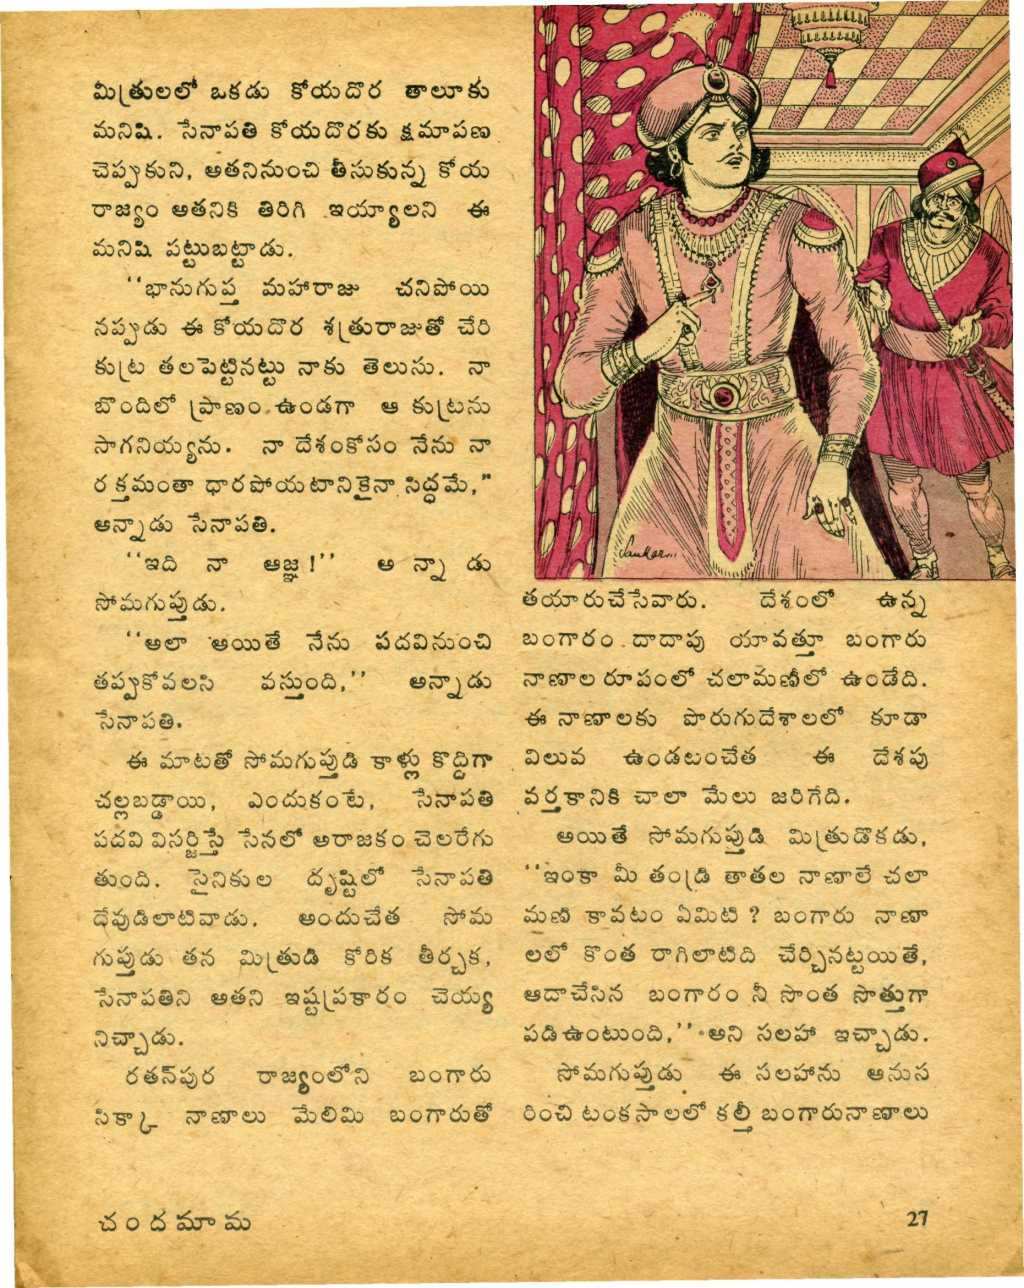 మిత్రులలో ఒకడు కోయదొర తాలూకు
మనిషి. సేనాపతి కోయదొరకు క్షమాపణ
చెప్పుకుని, అతనినుంచి తీసుకున్న కోయ
రాజ్యం అతనికి తిరిగి ఇయ్యాలని ఈ
మనిషి పట్టుబట్టాడు.
‘‘భానుగుప్త మహారాజు చనిపోయి
నప్పుడు ఈ కోయదొర శత్రురాజుతో చేరి
కుట్ర తలపెట్టినట్టు నాకు తెలుసు. నా
బొందిలో ప్రాణం ఉండగా ఆ కుట్రను
సాగనియ్యను. నా దేశంకోసం నేను నా
రక్తమంతా ధారపోయటానికైనా సిద్ధమే,”
అన్నాడు సేనాపతి.
‘‘ఇది నా ఆజ్ఞ!’’ అన్నాడు
సోమగుప్తుడు.
‘‘అలా అయితే నేను పదవినుంచి
తప్పుకోవలసి వస్తుంది,’’ అన్నాడు
సేనాపతి.
ఈ మాటతో సోమగుప్తుడి కాళ్లు కొద్దిగా
చల్లబడ్డాయి, ఎందుకంటే, సేనాపతి
పదవి విసర్జిస్తే సేనలో అరాజకం చెలరేగు
తుంది. సైనికుల దృష్టిలో సేనాపతి
దేవుడిలాటివాడు. అందుచేత సోమ
గుప్తుడు తన మిత్రుడి కోరిక తీర్చక,
సేనాపతిని అతని ఇష్టప్రకారం చెయ్య
నిచ్చాడు.
రతన్‌పుర రాజ్యంలోని బంగారు
సిక్కా నాణాలు మేలిమి బంగారుతో
Sankar...
తయారుచేసేవారు. దేశంలో ఉన్న
బంగారం దాదాపు యావత్తూ బంగారు
నాణాల రూపంలో చలామణీలో ఉండేది.
ఈ నాణాలకు పొరుగుదేశాలలో కూడా
విలువ ఉండటంచేత ఈ దేశపు
వర్తకానికి చాలా మేలు జరిగేది.
అయితే సోమగుప్తుడి మిత్రుడొకడు,
‘‘ఇంకా మీ తండ్రి తాతల నాణాలే చలా
మణి కావటం ఏమిటి? బంగారు నాణా
లలో కొంత రాగిలాటిది చేర్చినట్టయితే,
ఆదాచేసిన బంగారం నీ సొంత సొత్తుగా
పడిఉంటుంది,’’ అని సలహా ఇచ్చాడు.
సోమగుప్తుడు ఈ సలహాను అనుస
రించి టంకసాలలో కల్తీ బంగారునాణాలు
చందమామ
27